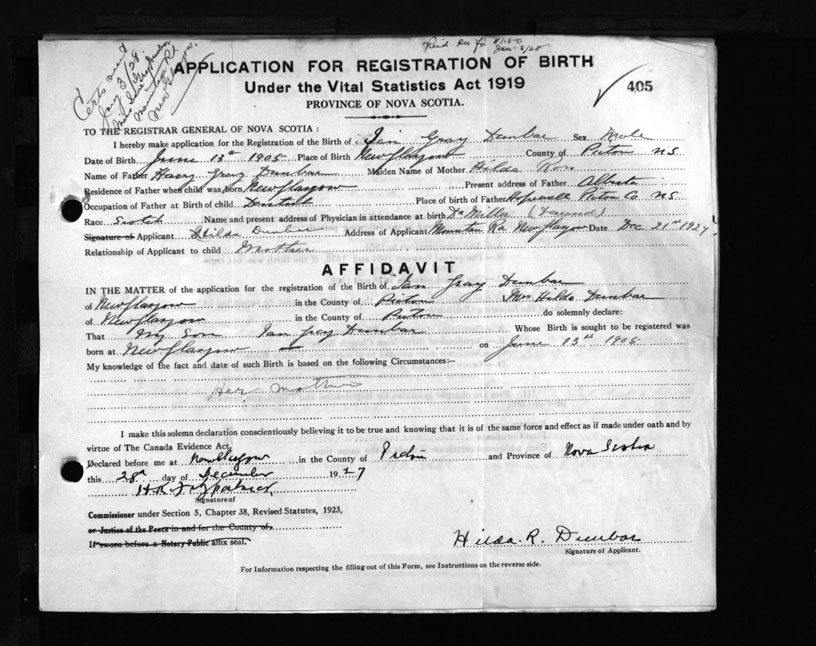 Certs sent
Jan 3/28
Paid Jan 3/28
APPLICATION FOR REGISTRATION OF BIRTH
Under the Vital Statistics Act 1919
PROVINCE OF NOVA SCOTIA.
405
TO THE REGISTRAR GENERAL OF NOVA SCOTIA:
I hereby make application for the Registration of the Birth of Ian Gray Dunbar Sex Male
Date of Birth June 13th 1905 Place of Birth New Glasgow County of Pictou NS
Name of Father Harry Gray Dunbar Maiden Name of Mother Hilda Ross
Residence of Father when child was born New Glasgow Present address of Father Alberta
Occupation of Father at Birth of child Dentist Place of birth of Father Hopewell Pictou Co NS
Race Scotch Name and present address of Physician in attendance at birth Dr Miller (Deceased)
Signature of Applicant Hilda Dunbar Address of Applicant Mountain Rd New Glasgow Date Dec 21st 1927
Relationship of Applicant to child Mother
AFFIDAVIT
IN THE MATTER of the application for the registration of the Birth of Ian Gray Dunbar
of New Glasgow in the County of Pictou Mrs Hilda Dunbar
of New Glasgow in the County of Pictou do solemnly declare:
That My Son Ian Gray Dunbar Whose Birth is sought to be registered was
born at New Glasgow on June 13th 1905
My knowledge of the fact and date of such Birth is based on the following Circumstances:—
Her mother
I make this solemn declaration conscientiously believing it to be true and knowing that it is of the same force and effect as if made under oath and by
virtue of The Canada Evidence Act.
Declared before me at New Glasgow in the County of Pictou and Province of Nova Scotia
this 28th day of December 1927
H.R. Fitzpatrick
Signature of
Commissioner under Section 5, Chapter 38, Revised Statutes, 1923,
or Justice of the Peace in and for the County of
If sworn before a Notary Public affix seal.
Hilda. R. Dunbar
Signature of Applicant.
For Information respecting the filling out of this Form, see Instructions on the reverse side.